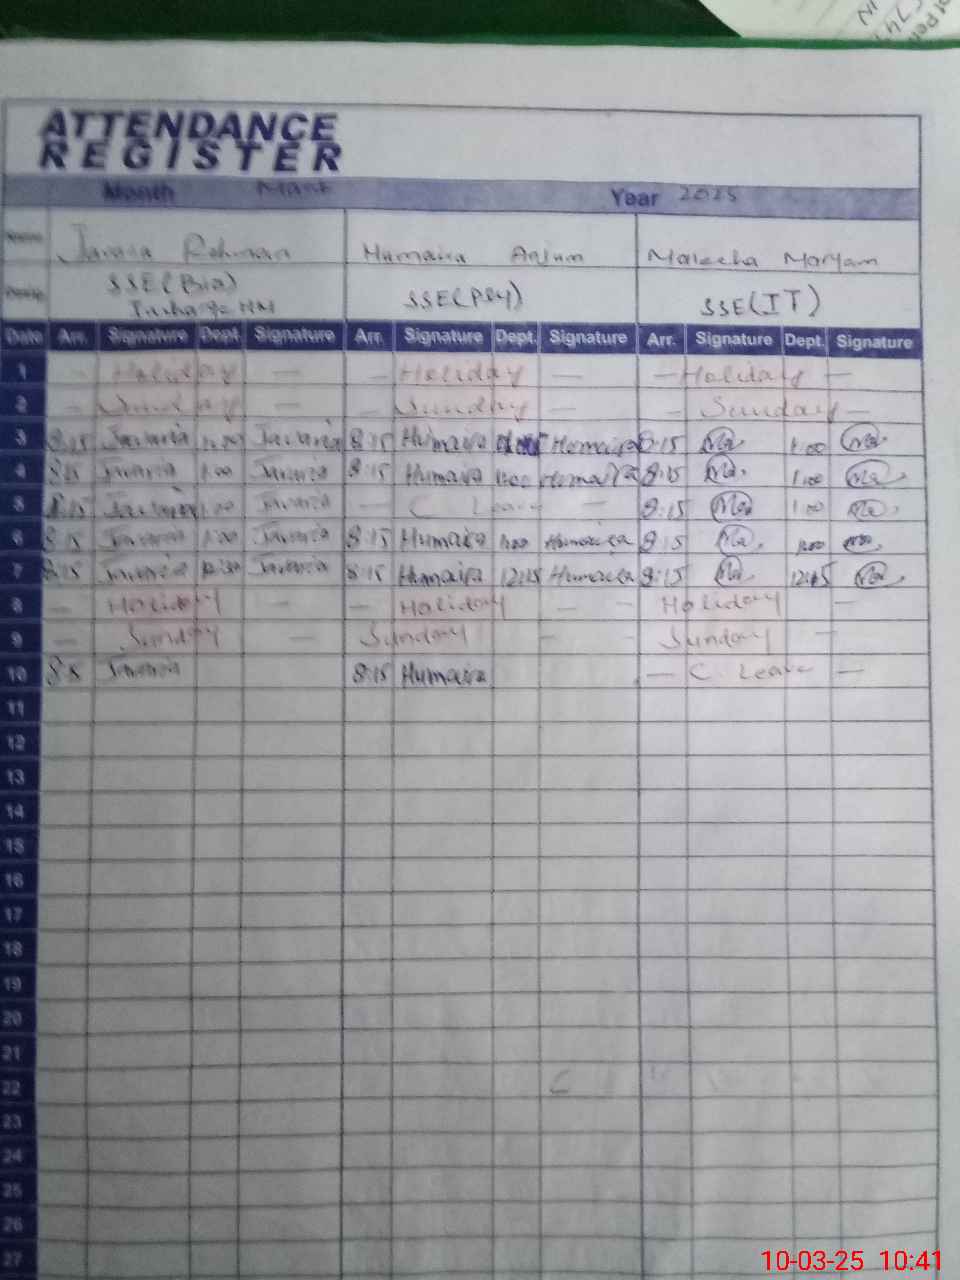 ATTENDANCE
REGISTER
Month Year 2025
Name Javaria Rehman Humaira Anjum Maleeha Maryam
Desig. SSE(Bio) SSE(Psy) SSE(IT)
Incharge HM
Date Arr. Signature Dept. Signature Arr. Signature Dept. Signature Arr. Signature Dept. Signature
1 - Holiday - - Holiday - - Holiday -
2 - Sunday - Sunday - - Sunday -
3 8:15 Javaria 1:00 Javaria 8:15 Humaira Humaira 8:15 Ma 1:00 Ma
4 8:15 Javaria 1:00 Javaria 8:15 Humaira 1:00 Humaira 8:15 Ma 1:00 Ma
5 8:15 Javaria 1:00 Javaria - C Leave - 8:15 Ma 1:00 Ma
6 8:15 Javaria 1:00 Javaria 8:15 Humaira 1:00 Humaira 8:15 Ma 1:00 Ma
7 8:15 Javaria 12:30 Javaria 8:15 Humaira 12:15 Humaira 8:15 Ma 12:45 Ma
8 - Holiday - - Holiday - - Holiday -
9 - Sunday - Sunday - - Sunday -
10 8:15 Javaria 8:15 Humaira - C. Leave -
11
12
13
14
15
16
17
18
19
20
21
22
23
24
25
26
27
10-03-25 10:41